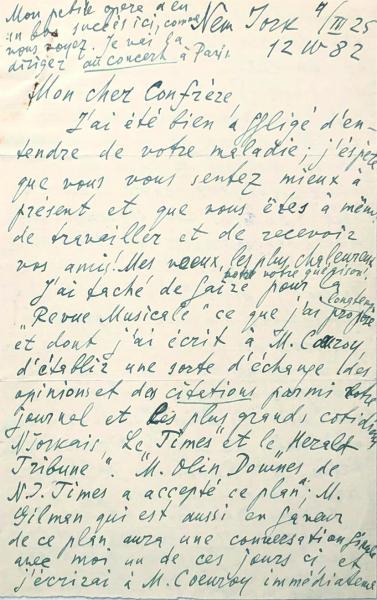 Mon petit opéra a eu
un bon succès ici, comme
vous voyez. Je vais la
diriger au concert à Paris
New York 4/III 25
12 W 82
Mon cher Confrère,
J'ai été bien affligé d'en-
tendre de votre maladie; j'espère
que vous vous sentez mieux à
présent et que vous êtes à même
de travailler et de recevoir
vos amis! Mes voeux les plus chaleureux
pour votre guérison!
J'ai taché de faire pour la
"Revue Musicale" ce que j'ai proposé
longtemps
et dont j'ai écrit à M. Coeuroy
d'établir une sorte d'échange des
opinions et des citations parmi votre
journal et les plus grands cotidiens
Niorkais, Le "Times" et le "Herald
Tribune". M. Olin Downes de
N.Y. Times a accepté ce plan; M.
Gilman qui est aussi en faveur
de ce plan aura une conversation
avec moi un de ces jours ci et
j'écrirai à M. Coeuroy immédiatement